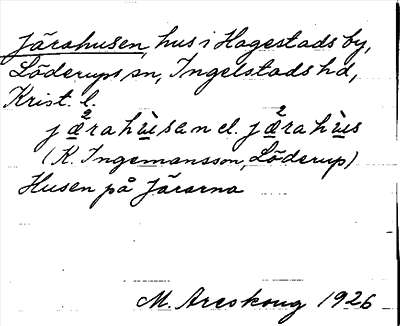 Järahusen, hus i Hagestads by,
Löderups sn, Ingelstads hd,
Krist. l.
jæ̀²rahù̱san el. jæ̀²rahù̱s
(K. Ingemansson, Löderup)
Husen på Järarna
M. Areskoug 1926